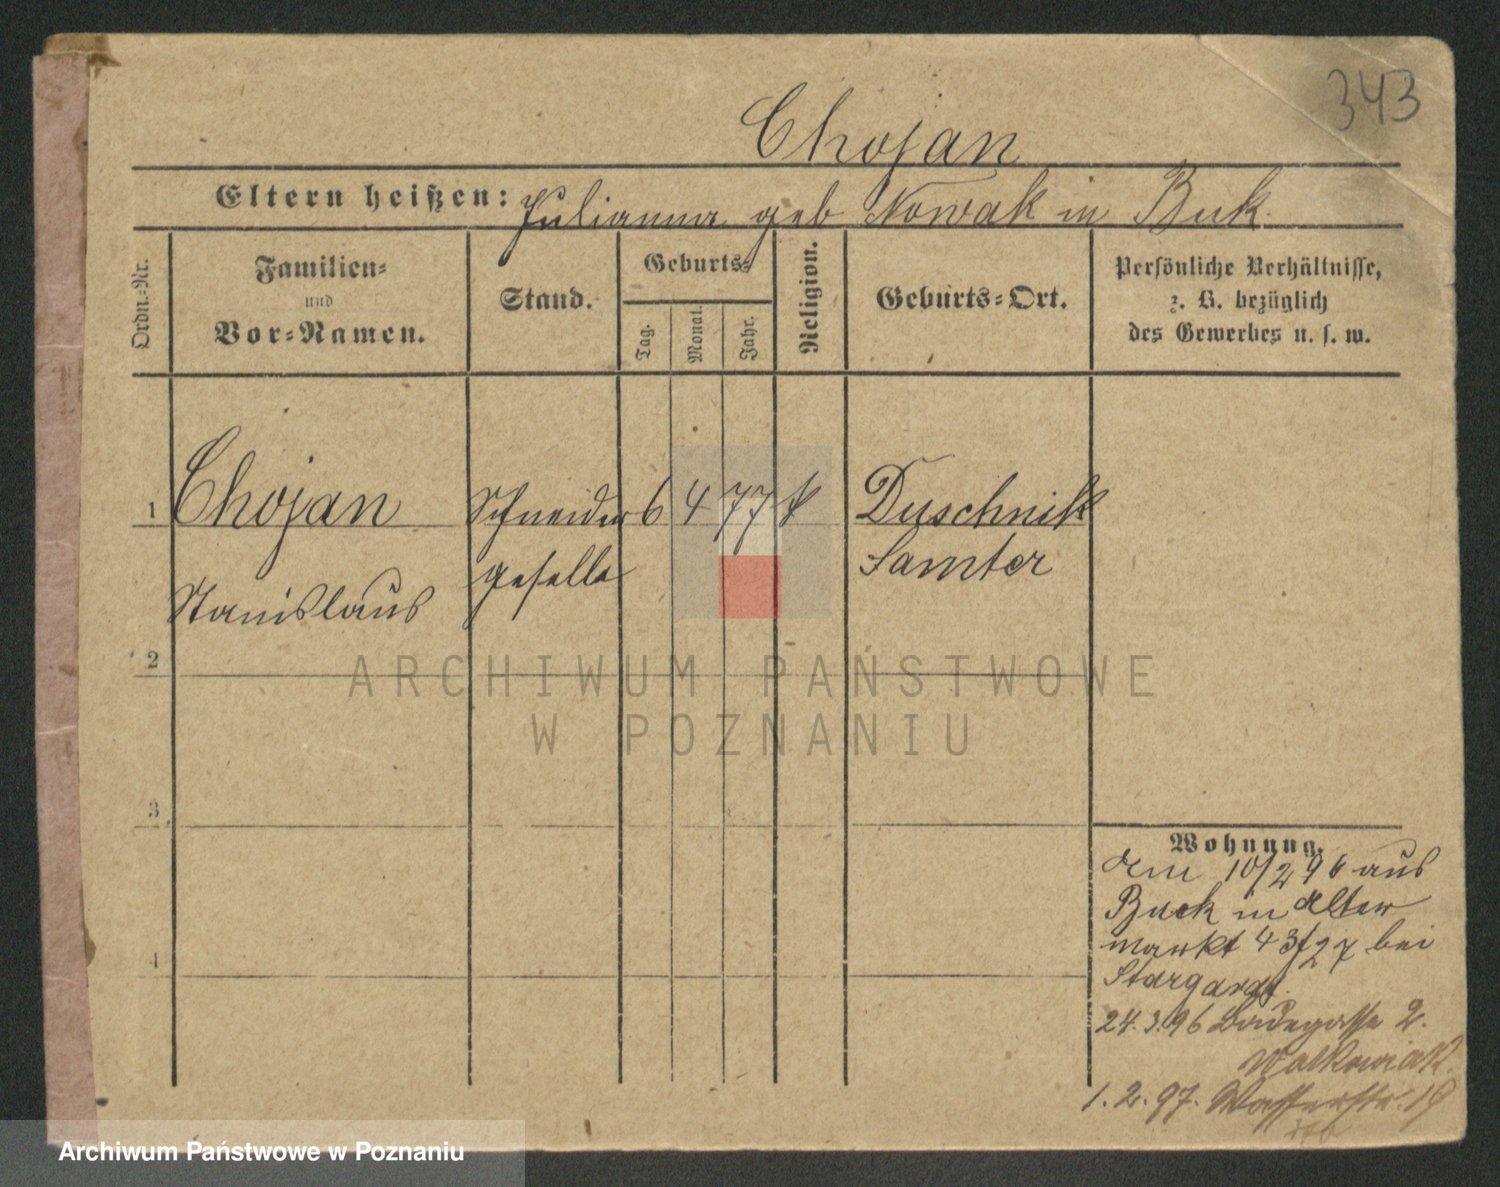 343
Chojan
Eltern heißen: Julianna geb Nowak in Buk.
Ordn.-Nr.
Familien-
und
Vor-Namen.
Stand.
Geburts-
Tag.
Monat.
Jahr.
Religion.
Geburts-Ort.
Persönliche Verhältnisse,
z. B. bezüglich
des Gewerbes u. s. w.
1 Chojan Schneider 6 4 77 k Duschnik
geselle Samter
Stanislaus
2
3
4
ARCHIWUM PAŃSTWOWE
W POZNANIU
Wohnung.
den 10/2 96 aus
Buck in Alter
markt 43/27 bei
Stargardt.
24.3.96 Badegasse 2.
Walkowiak.
1.2.97. Wasserstr. 19
Archiwum Państwowe w Poznaniu